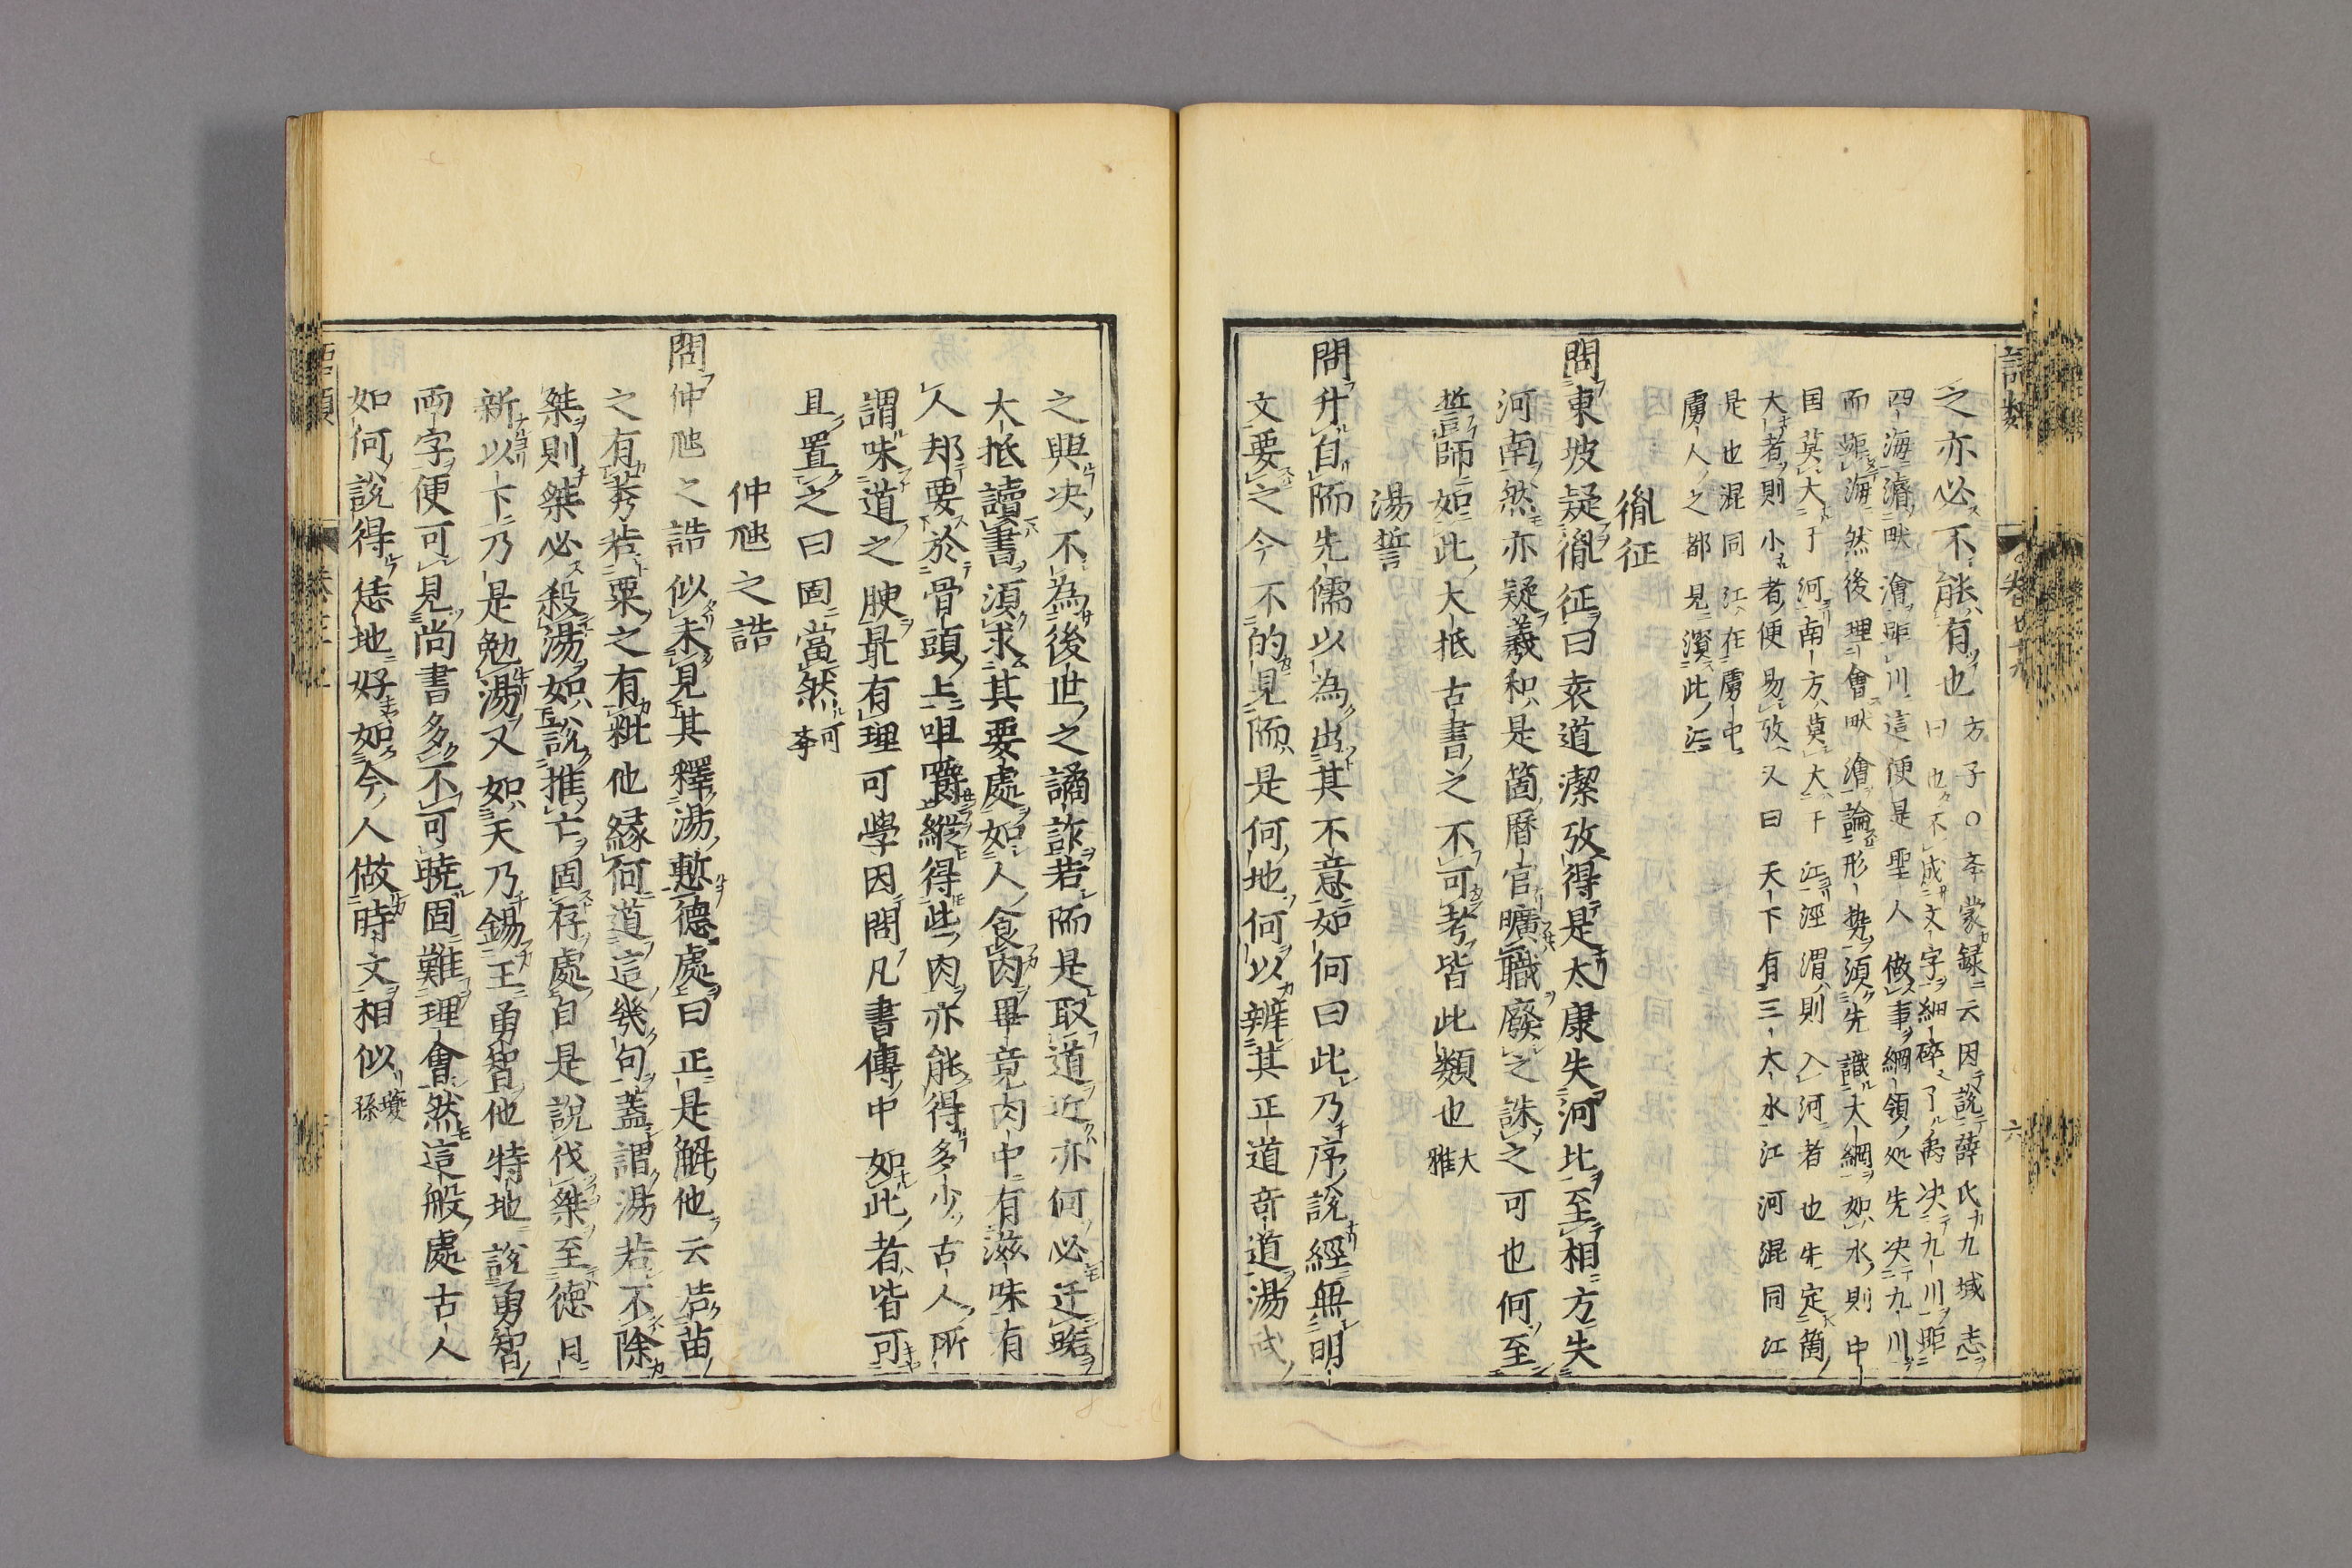 之亦必不能有也
方子○夲蒙録云因說薛氏九域志
曰也不成文字細碎了禹决九川距
四海濬畎澮距川這便是聖人做事綱領处先决九川
而距海然後理會畎澮論形勢須先識大綱如水則中
国莫大于河南方莫大于江涇渭則入河者也先定箇
大者則小者便易攷又曰天下有三大水江河混同江
是也混同江在虜中
虜人之都見濱此江
胤征
問東坡疑胤征曰袁道潔攷得是太康失河北至相方失
河南然亦疑羲和是箇曆官曠職廢之誅之可也何至
誓師如此大抵古書之不可考皆此類也大雅
湯誓
問升自陑先儒以為出其不意如何曰此乃序說經無明
文要之今不的見陑是何地何以辨其正道竒道湯武
之興决不為後世之譎詐若陑是取道近亦何必迂路
大抵讀書須求其要處如人食肉畢竟肉中有滋味有
人却要於骨頭上咀嚼縱得些肉亦能得多少古人所
謂味道之腴最有理可學因問凡書傳中如此者皆可
且置之曰固當然可夲
仲虺之誥
問仲虺之誥似未見其釋湯慙德處曰正是解他云若苗
之有莠若粟之有粃他縁何道這幾句蓋謂湯若不除
桀則桀必殺湯如說推亡固存處自是說伐桀至德日
新以下乃是勉湯又如天乃錫王勇智他特地說勇智
兩字便可見尚書多不可曉固難理會然這般處古人
如何說得恁地好如今人做時文相似䕫孫
語類
卷七十九
六